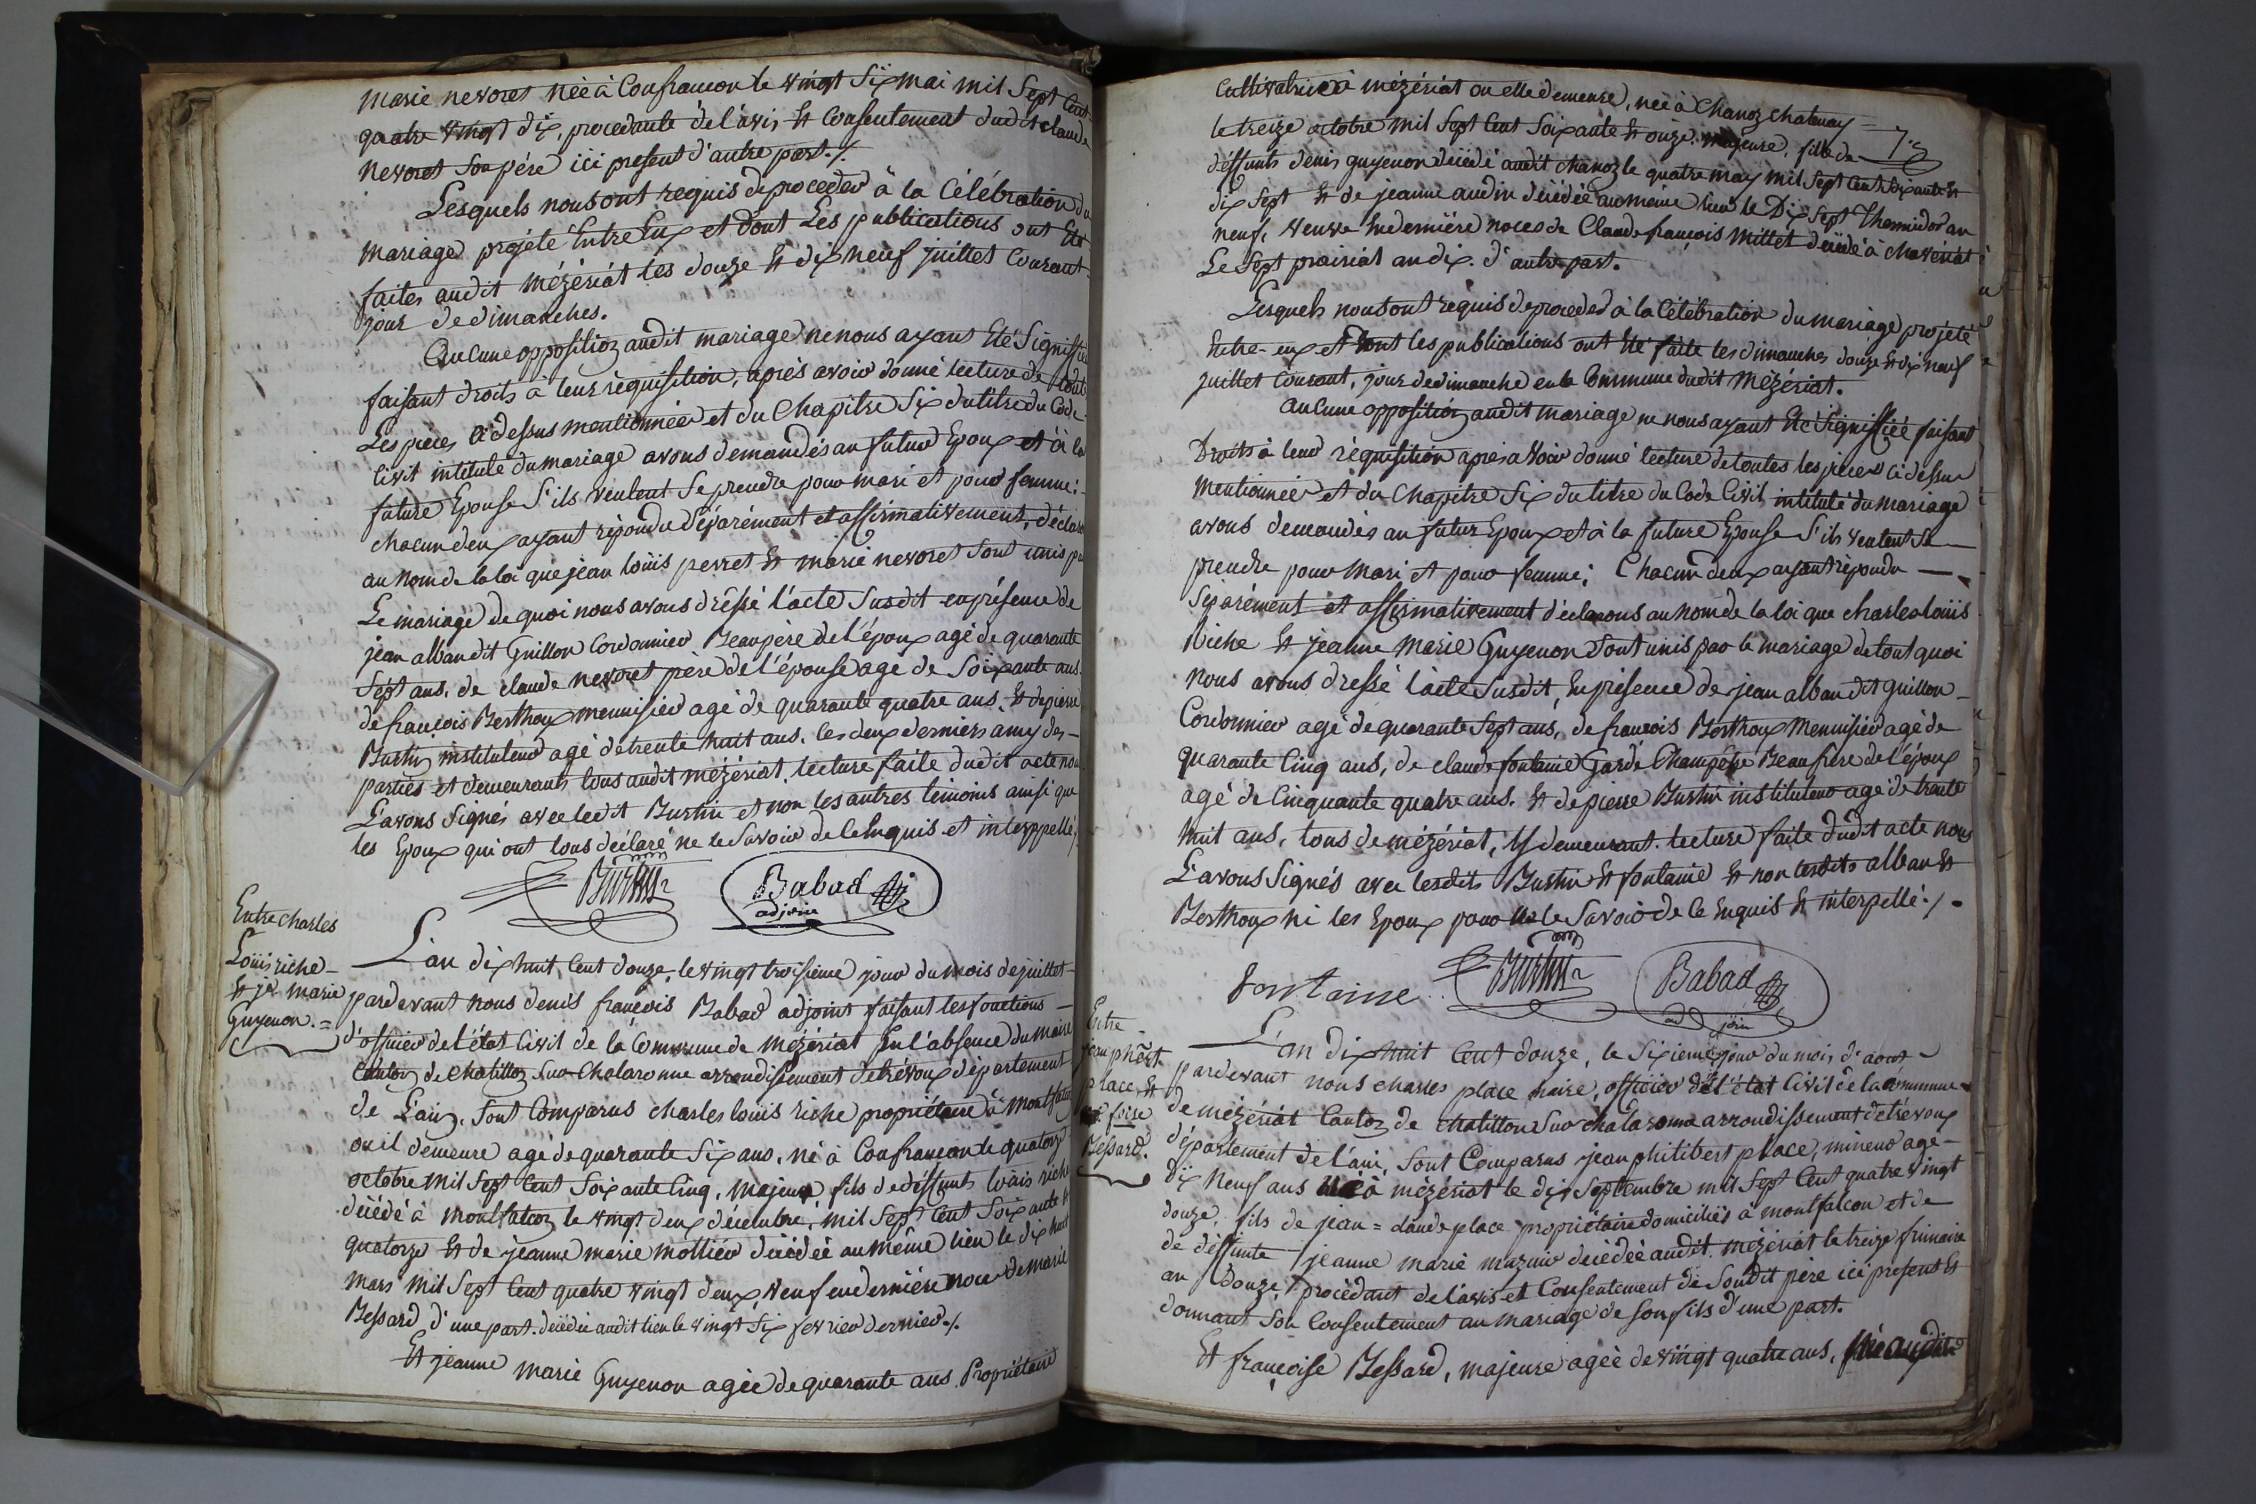 marie nevoret née à Confrancon le vingt Six mai mil Sept Cent
quatre vingt dix, procedante de l'avis et Consentement dudit claude
nevoret Son père ici present d'autre part./.
Lesquels nous ont requis de proceder à la Célébration du
mariage projeté Entre Eux et dont Les publications ont Eté
faites audit mézériat les douze et dix neuf juillet Courant
jour de dimanches.
Aucune opposition audit mariage ne nous ayant Eté Signiffiée
faisant droits à leur réquisition, après avoir donné lecture de toutes
Les pièces ci dessus mentionnées et du Chapitre Six du titre du Code
Civil intitulé du mariage avons demandés au futur Epoux et à la
future Epouse S'ils veulent Se prendre pour mari et pour femme;
chacun d'eux ayant répondu Séparément et affirmativement, déclarons
au nom de la loi que jean loüis perret et marie nevoret Sont unis par
Le mariage de quoi nous avons dréssé l'acte Susdit en présence de
jean alban dit Guillon Cordonnier Beaupère de l'époux agé de quarante
Sept ans, de claude nevoret père de l'épouse agé de Soixante ans
de francois Berthoux mennisier agé de quarante quatre ans, et de pierre
Burtin instituteur agé de trente huit ans, les deux derniers amy des
parties et demeurants tous audit mézériat, lecture faite dudit acte nous
L'avons Signés avec ledit Burtin et non les autres témoins ainsi que
les Epoux qui ont tous déclaré ne le Savoir de ce Enquis et interppellé/.
Burtin Babad
adjoin
Entre charles
Loüis riche
et jne marie
Guyenon. =
L'an dix huit Cent douze, le vingt troisieme jour du mois de juillet
pardevant nous denis françois Babad adjoint faisant les fonctions
d'officier de l'état Civil de la Commune de mézériat En l'absence du maire
Canton de chatillon Sur Chalaronne arrondissement de trévoux département
de L'ain. Sont Comparus charles loüis riche propriétaire à montfalcon
ou il demeure agé de quarante Six ans, né à Confrancon le quatorze
octobre mil Sept Cent Soixante Cinq, majeur, fils de déffunts loüis riche
décédé à montfalcon le vingt deux décembre, mil Sept Cent Soixante et
quatorze et de jeanne marie mottier décédée au même lieu le dix huit
mars mil Sept Cent quatre vingt deux, veuf en dernière noce de marie
Bessard d'une part. décédée audit lieu le vingt Six fevrier dernier./.
Et jeanne marie Guyenon agée de quarante ans Propriétaire
Cultivatrice à mézériat ou elle demeure, née à Chanoz chatenay
le treize octobre mil Sept Cent Soixante et onze. majeure, fille de
déffunts denis guyenon décédé audit chanoz le quatre may mil Sept Cent Soixante et
dix Sept et de jeanne audin décédée au même lieu le Dix Sept Thermidor an
neuf, veuve En dernière noces de Claude françois Millet décédé à chaveriat
Le Sept prairial an dix. d'autre part.
Lesquels nous ont requis de proceder à la Célébration du mariage projeté
Entre eux et dont les publications ont Eté faite les dimanches douze et dix neuf
juillet Courant, jour de dimanche en la Commune dudit mézériat.
Aucune opposition audit mariage ne nous ayant Eté Signiffiée faisant
Droits à leur réquisition après avoir donné lecture de toutes les pièces ci dessus
mentionnées et du Chapitre Six du titre du Code Civil intitulé du mariage
avons demandés au futur Epoux et à la future Epouse S'ils veulent Se
prendre pour mari et pour femme; Chacun d'eux ayant répondu
Séparément et affirmativement déclarons au nom de la loi que charles loüis
Riche et jeanne marie Guyenon Sont unis par le mariage de tout quoi
nous avons dressé l'acte Susdit, En présence de jean alban dit guillon
Cordonnier agé de quarante Sept ans, de francois Berthoux Mennisier agé de
quarante Cinq ans, de claude fontaine Garde Champêtre Beaufrère de l'époux
agé de Cinquante quatre ans. et de pierre Burtin instituteur agé de trente
huit ans, tous de mézériat, y demeurant. lecture faite dudit acte nous
L'avons Signés avec lesdits Burtin et fontaine et non lesdits alban et
Berthoux ni les Epoux pour le Savoir de ce Enquis et interpellé./.
fontaine Burtin Babad
adjoin
Entre
jean phbert
place et
foise
Bessard.
L'an dix huit Cent douze, le Sixieme jour du mois d'aout
pardevant nous charles place maire, officier de l'état Civil de la Commune
de mézériat Canton de chatillon Sur chalaronne arrondissement de trévoux
département de l'ain, Sont Comparus jean philibert place, mineur agé
dix neuf ans né à mézériat le dix Septembre mil Sept Cent quatre vingt
douze, fils de jean = claude place propriétaire domiciliés à montfalcon et de
de déffunte jeanne marie mazuir décédée audit mézériat le treize frimaire
an douze, procédant de l'avis et Consentement de Sondit père ici présent et
donnant Son Consentement au mariage de Son fils d'une part.
Et françoise Bessard, majeure agée de vingt quatre ans,